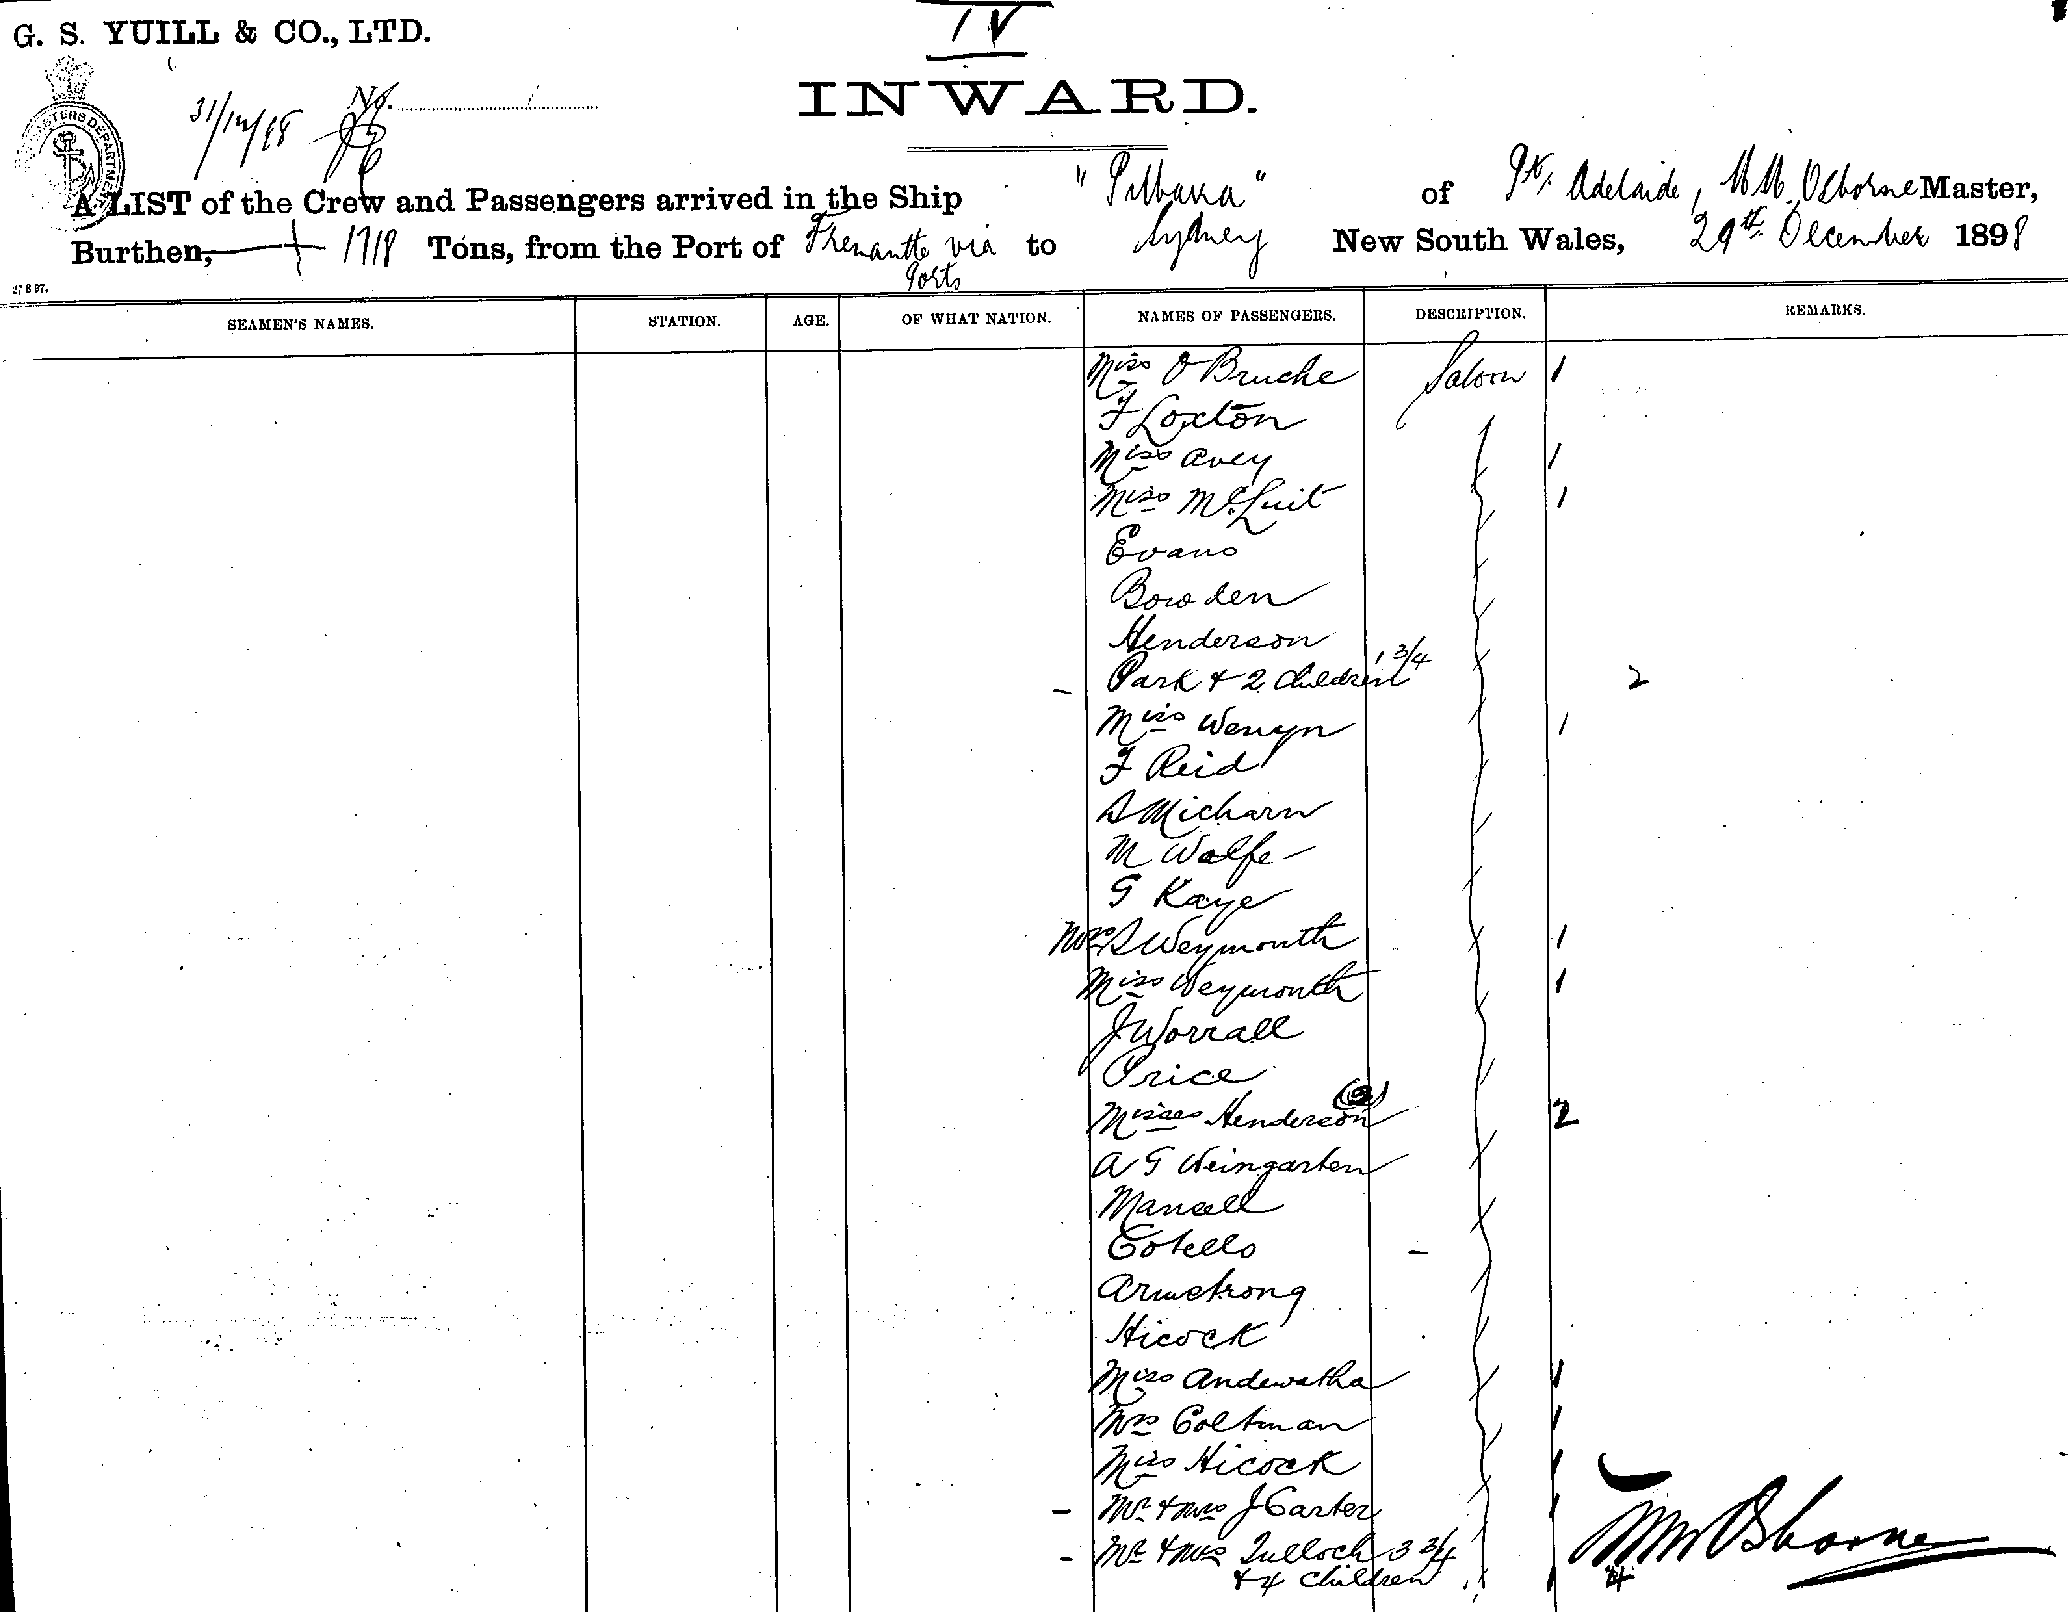 G. S. YUILL & CO., LTD.
IV
31/12/98
No.
INWARD.
A LIST of the Crew and Passengers arrived in the Ship "Pilbarra" of Pt. Adelaide, Wm Osborne Master,
Burthen, 1718 Tons, from the Port of Fremantle via Ports to Sydney New South Wales, 29th December 1898
SEAMEN'S NAMES. STATION. AGE. OF WHAT NATION. NAMES OF PASSENGERS. DESCRIPTION. REMARKS.
Miss O Bruche Saloon 1
F Loxton
Miss Avey 1
Miss 1
Evans
Bowden
Henderson
Park & 2 Children 1 3/4 2
Miss 1
F Reid
S
M Wolfe
G Kaye
Mrs S Weymouth 1
Miss Weymouth 1
J Worrall
Price
Misses Henderson (2) 2
A G Weingarten
Mansell
Armstrong
Hicock
Miss Andewatha 1
Mrs Coltman 1
Miss Hicock 1
Mr & Mrs J Carter 1
Mr & Mrs Tulloch 3 3/4
& 4 Children 1 4
Wm Osborne